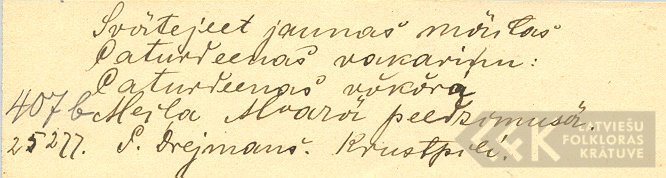 Svātejeet jaunas māitas
Caturdeenas vakariņu:
Caturdeenas vōkōrā
407b Meila Moarā peedzomusā.
25277. P. Drejmans. Krustpilī.
LATVIEŠU
FOLKLORAS
KRĀTUVE